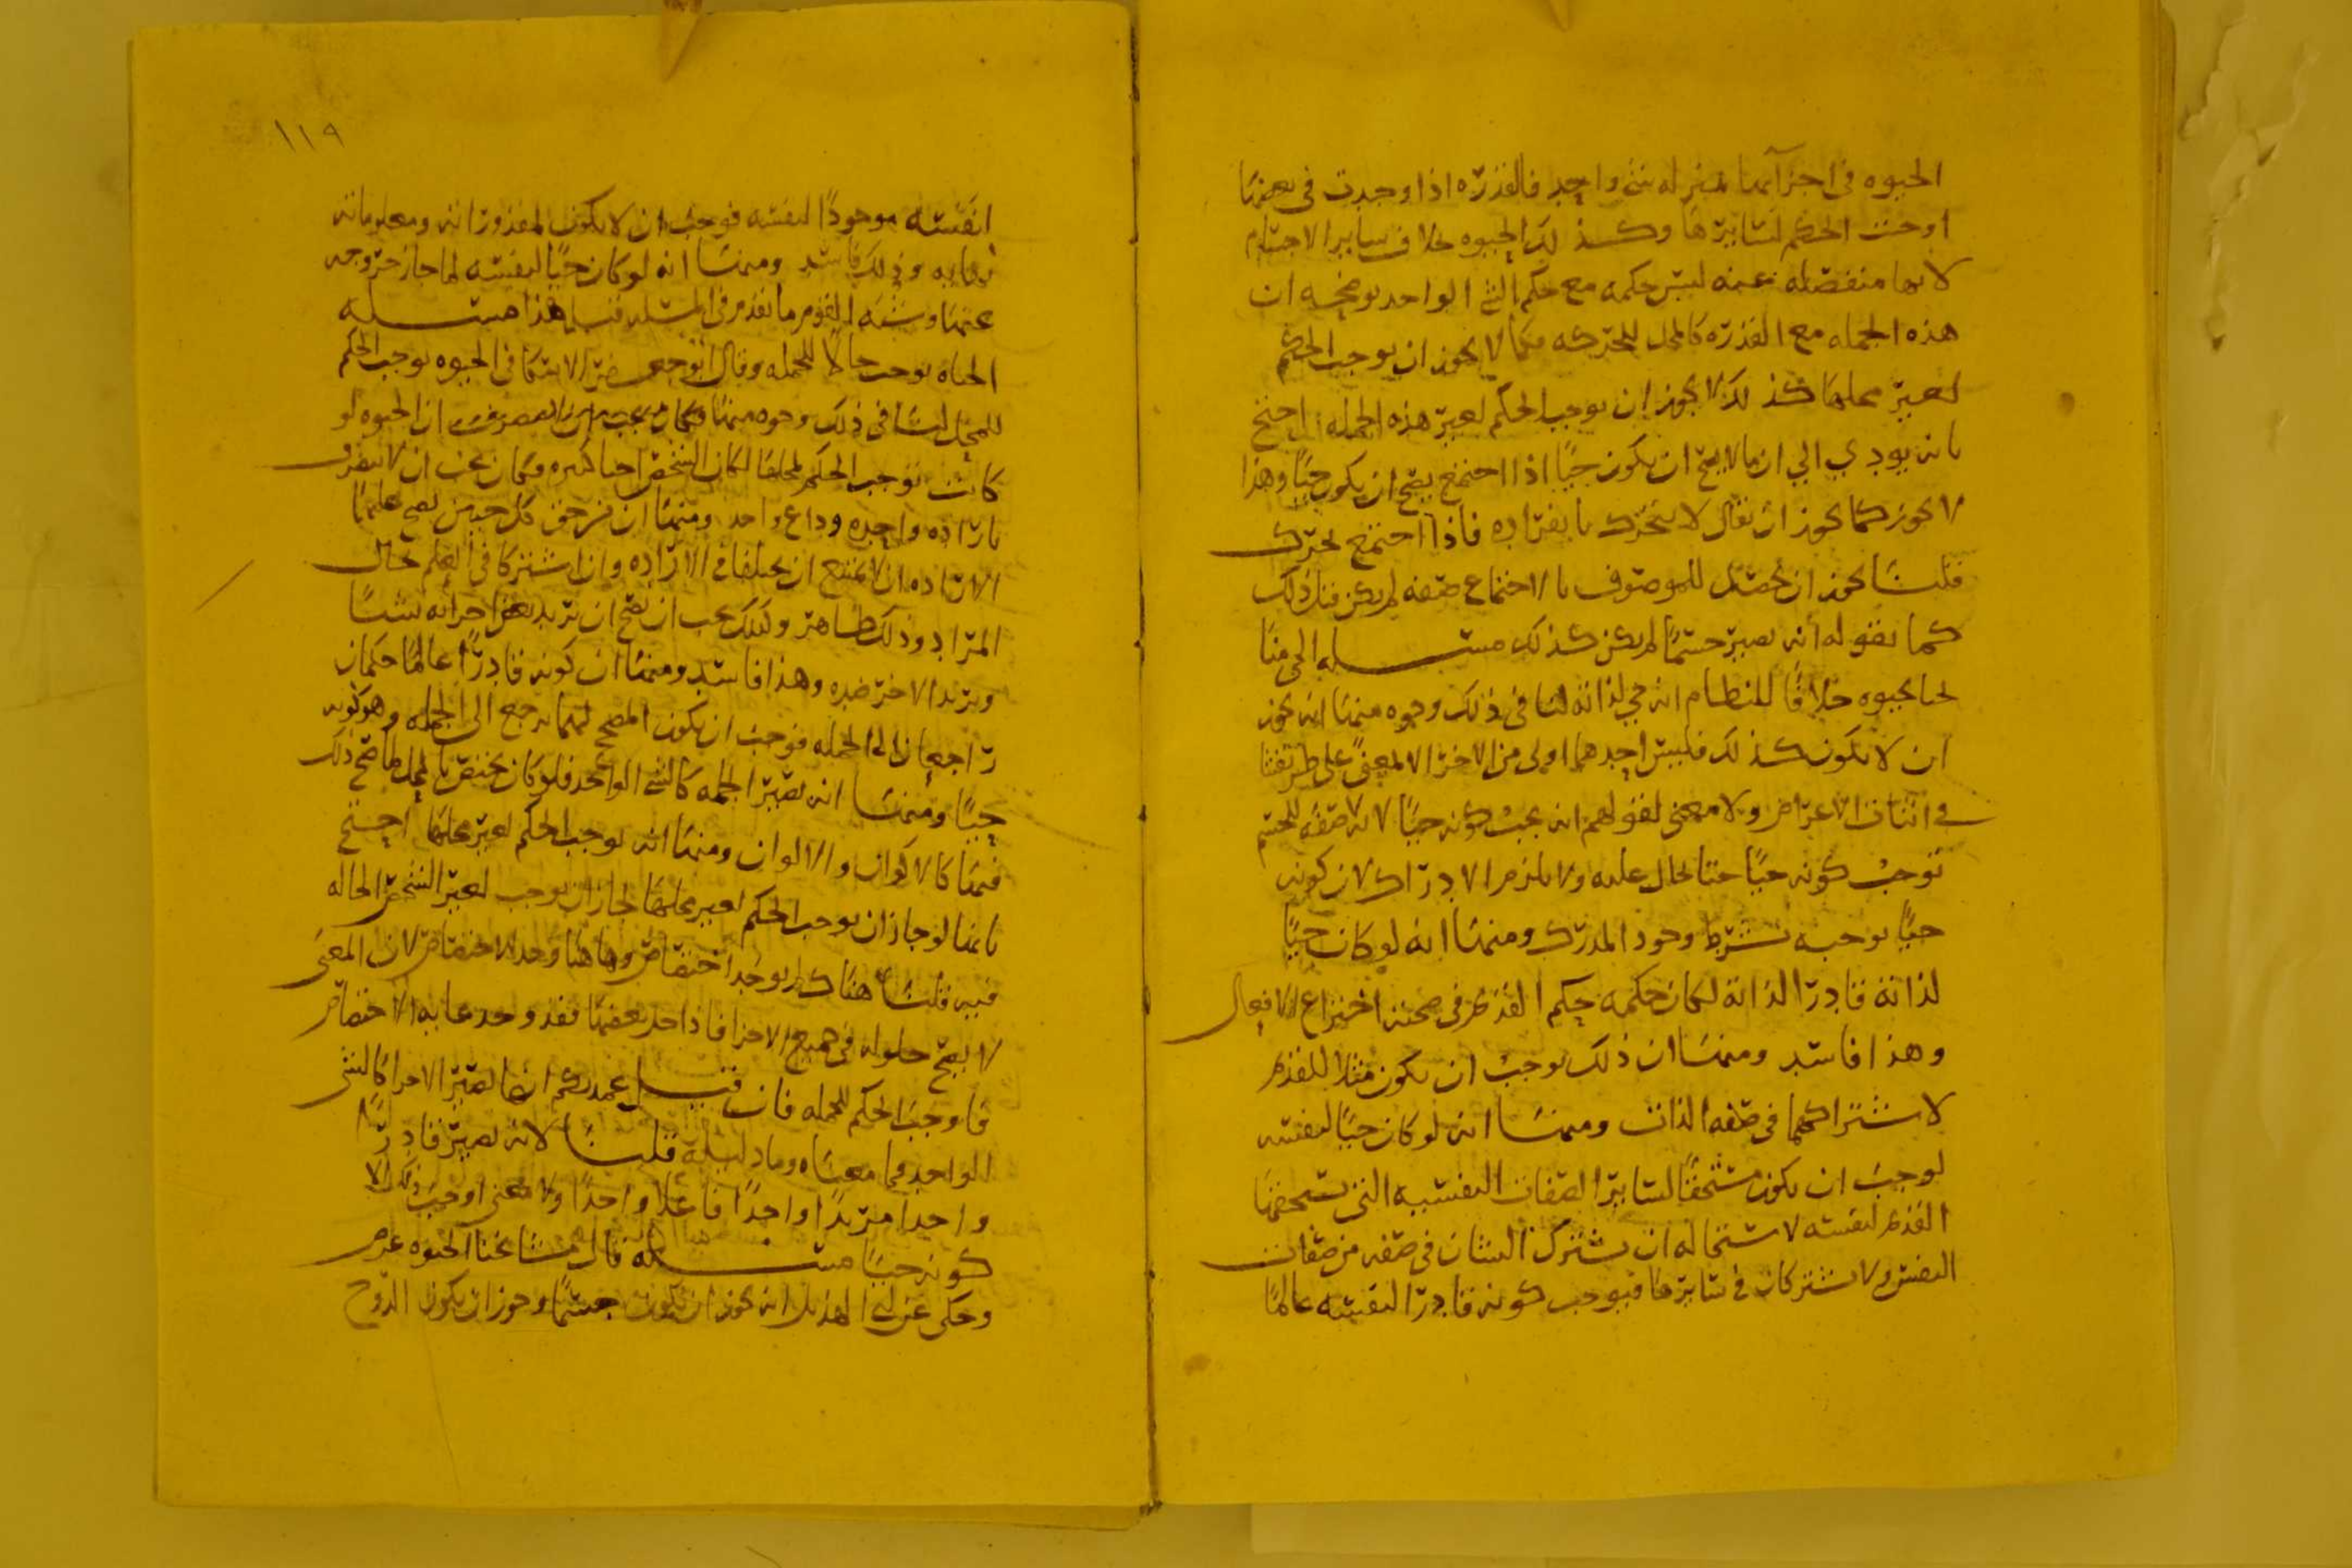 الحيوه في اجزآئها بمنزله شي واحد فالقدره اذا وجدت في بعضها
اوجبت الحكم لسايرها وكذلك الحيوه خلاف ساير الاجسام
لانها منفصله عنه ليس حكمه مع حكم الشي الواحد يوضحه ان
هذه الجمله مع القدره كالمحل للحركه فكما لا يجوز ان يوجب الحكم
لغير محلها كذلك لا يجوز ان يوجب الحكم لغير هذه الجمله احتج
بانه يودي الي ان ما لا يصح ان يكون حيًا اذا اجتمع يصح ان يكون حيًا وهذا
لا يجوز كما لا يجوز ان يقال لا يتحرك بانفراده فاذا اجتمع تحرك
قلنا يجوز ان يحصل للموصوف بالاجتماع صفه لم يكن قبل ذلك
كما نقوله انه يصير جسمًا لم يكن كذلك مسله الحي منا
حيا بحيوه خلافًا للنظام انه حي لذاته لنا في ذلك وجوه منها انه يجوز
ان لا يكون كذلك فليس احدهما اولى من الاخر الا لمعنى على طريقتنا
في اثبات الاعراض ولا معنى لقولهم انه يجب كونه حيًا لانه صفه للجسم
توجب كونه حيًا حتى الحال عليه ولا يلزم الادراك لان كونه
حيًا يوجبه بشرط وجود المدرك ومنها انه لو كان حيًا
لذاته قادرًا لذاته لكان حكمه حكم القديم في صحته اختراع الافعال
وهذا فاسد ومنها ان ذلك يوجب ان يكون مثلا للقديم
لاشتراكهما في صفه الذات ومنها انه لو كان حيًا لنفسه
لوجب ان يكون مستحقًا لساير الصفات النفسيه التي يستحقها
القديم لنفسه لاستحاله ان يشترك الشيان في صفه من صفات
النفس ولا يشتركان في سايرها فيوجب كونه قادرًا لنفسه عالمًا
١١٩
لنفسه موجودًا لنفسه فوجب ان لا يكون لمقدوراته ومعلوماته
نهايه وذلك فاسد ومنها انه لو كان حيًا لنفسه لما جاز خروجه
عنها وشبه القوم ما تقدم في المسله قبل هذا مسله
الحياه توجب حالا للجمله وقال ابو جعفر الاسكافي الحيوه توجب الحكم
للمحل لنا في ذلك وجوه منها ان الحيوه لو
كانت توجب الحكم لمحلها لكان الشخص احيا كثيره فكان يجب ان لا يتصرف
بارادة واحده وداع واحد ومنها ان من حق كل حيين يصح عليهما
الاراده ان لا يمتنع ان يختلفا في الاراده وان اشتركا في العلم بحال
المراد وذلك ظاهر ولذلك يجب ان يصح ان يريد بعض اجزائه شيئا
ويريد الاخر ضده وهذا فاسد ومنها ان كونه قادرًا عالمًا حكمان
راجعان الى الجمله فوجب ان يكون المصحح لهما يرجع الى الجمله وهو كونه
حيًا ومنها انه يصير الجمله كالشي الواحد فلو كان يختص بالمحل لما صح ذلك
فيها كالاكوان والالوان ومنها انه يوجب الحكم لغير محلها احتج
بانها لو جاز ان يوجب الحكم لغير محلها لجاز ان يوجب لغير الشخص الحاله
فيه قلنا هناك لم يوجد اختصاص وهاهنا وجد الاختصاص لان المعنى
لا يصح حلوله في جميع الاجزا فاذا حل بعضها فقد وجد غايه الاختصاص
فاوجب الحكم للجمله فان قيل عندكم انها تصير الاجزا كالشي
الواحد فما معناه وما دليله قلنا لانه يصير قادرًا
واحدا مريدًا واحدًا فاعلا واحدًا ولا معنى اوجب ذلك الا
كونه حيًا مسله قال مشايخنا الحيوه عرض
وحكى عن ابي الهذيل انه يجوز ان يكون جسمًا وجوز ان يكون الروح